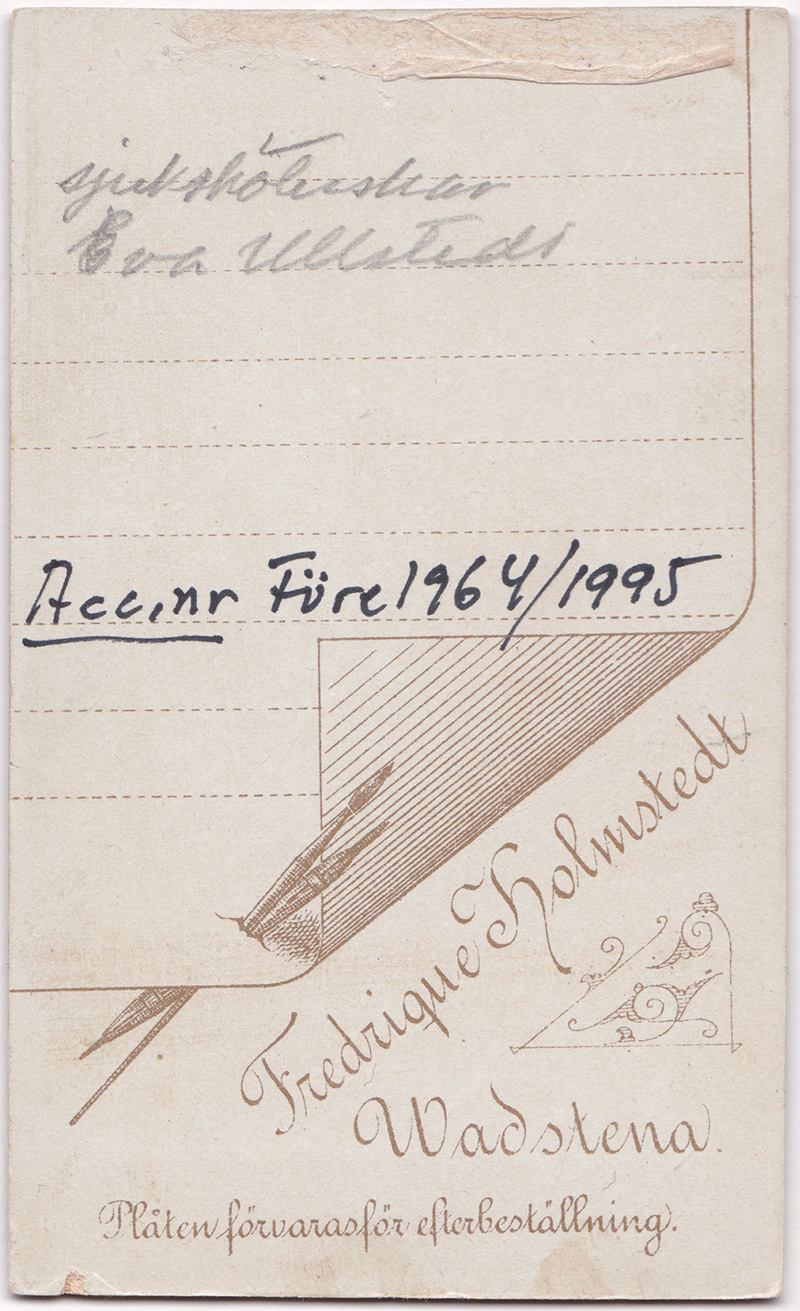 sjuksköterskan
Eva Ullstedt
Acc.nr Före 1964/1995
Fredrique Holmstedt
Wadstena.
Plåten förvaras för efterbeställning.